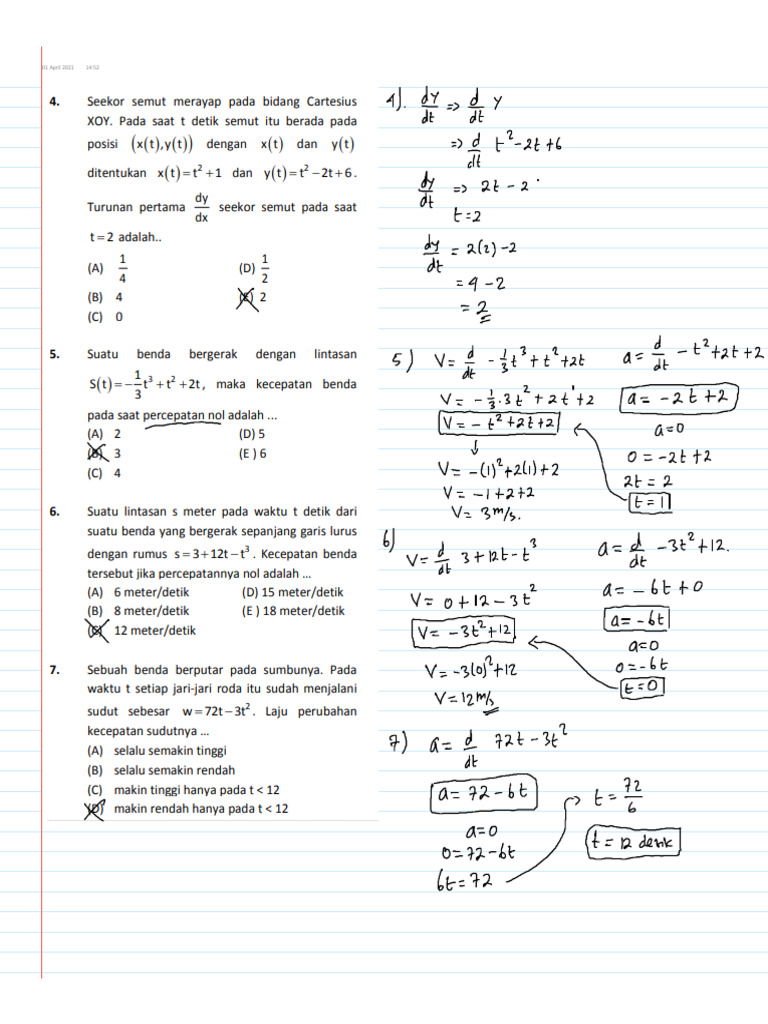 01 April 2021 14:52
4. Seekor semut merayap pada bidang Cartesius
XOY. Pada saat t detik semut itu berada pada
posisi (x(t),y(t)) dengan x(t) dan y(t)
ditentukan x(t)=t²+1 dan y(t)=t²−2t+6.
Turunan pertama dy/dx seekor semut pada saat
t=2 adalah..
(A) 1/4 (D) 1/2
(B) 4 (E) 2
(C) 0
5. Suatu benda bergerak dengan lintasan
S(t)=−1/3t³+t²+2t, maka kecepatan benda
pada saat percepatan nol adalah ...
(A) 2 (D) 5
(B) 3 (E ) 6
(C) 4
6. Suatu lintasan s meter pada waktu t detik dari
suatu benda yang bergerak sepanjang garis lurus
dengan rumus s=3+12t−t³. Kecepatan benda
tersebut jika percepatannya nol adalah ...
(A) 6 meter/detik (D) 15 meter/detik
(B) 8 meter/detik (E ) 18 meter/detik
(C) 12 meter/detik
7. Sebuah benda berputar pada sumbunya. Pada
waktu t setiap jari-jari roda itu sudah menjalani
sudut sebesar w=72t−3t². Laju perubahan
kecepatan sudutnya ...
(A) selalu semakin tinggi
(B) selalu semakin rendah
(C) makin tinggi hanya pada t < 12
(D) makin rendah hanya pada t < 12
4). dy/dt => d/dt y
=> d/dt t²-2t+6
dy/dt => 2t-2
t=2
dy/dt = 2(2)-2
= 4-2
= 2
5) V= d/dt -1/3t³+t²+2t
V= -1/3.3t²+2t'+2
V= -t²+2t+2
V= -(1)²+2(1)+2
V= -1+2+2
V= 3 m/s.
a= d/dt -t²+2t+2
a= -2t+2
a=0
0= -2t+2
2t=2
t=1
6) V= d/dt 3+12t-t³
V= 0+12-3t²
V= -3t²+12
V= -3(0)²+12
V= 12 m/s
a= d/dt -3t²+12.
a= -6t+0
a= -6t
a=0
0=-6t
t=0
7) a= d/dt 72t-3t²
a= 72-6t
a=0
0=72-6t
6t=72
t= 72/6
t= 12 detik